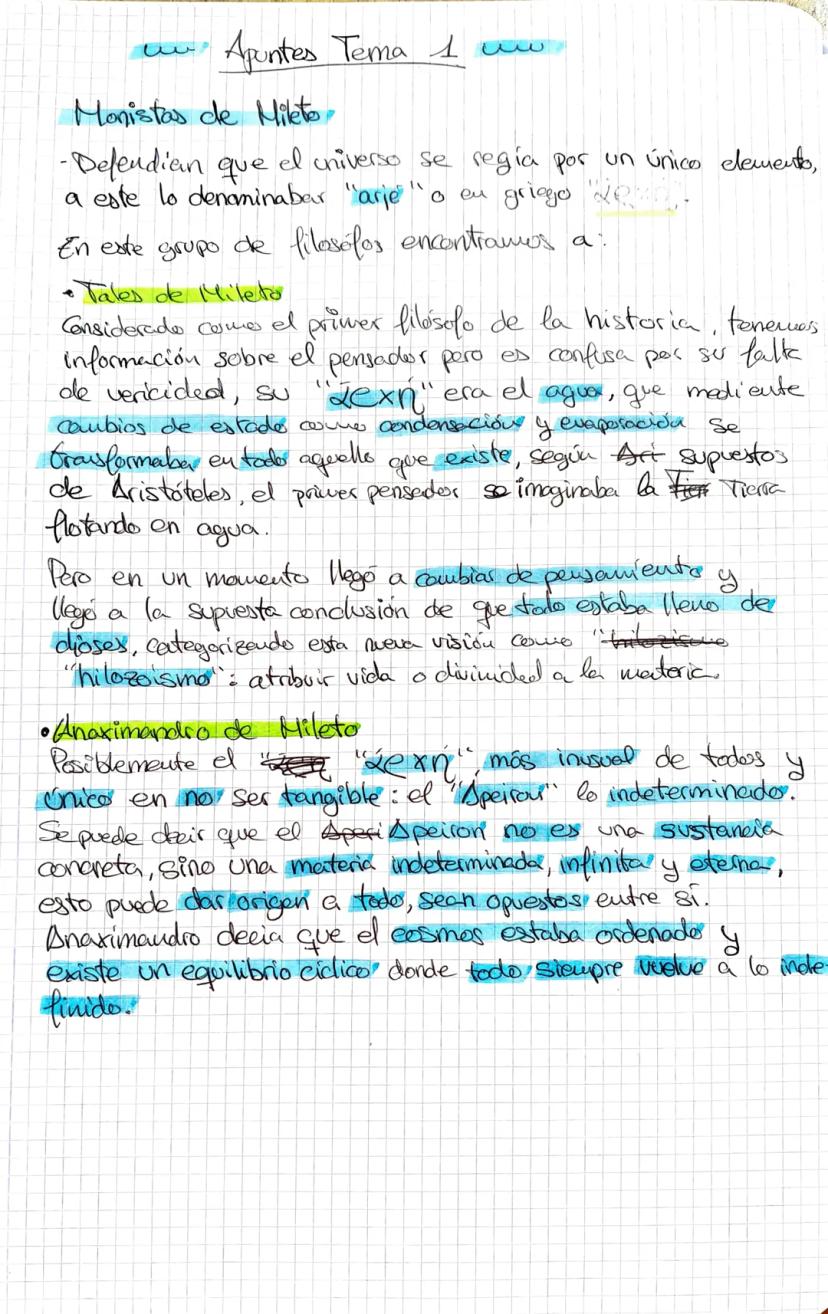 Apuntes Tema 1
Monistas de Mileto
- Defendian que el universo se regía por un único elemento,
a este lo denominaban "arjé" o en griego
En este grupo de filosófos encontramos a:
• Tales de Mileto
Considerado como el primer filósofo de la historia, tenemos
información sobre el pensador pero es confusa por su falta
de vericidad, su "ἀρχή" era el agua, que mediante
cambios de estado como condensación y evaporación se
transformaba en todo aquello que existe, según Ari supuestos
de Aristóteles, el primer pensador se imaginaba la Tier Tierra
flotando en agua.
Pero en un momento llegó a cambiar de pensamiento y
llegó a la supuesta conclusión de que todo estaba lleno de
dioses, categorizando esta nueva visión como "
"hilozoismo": atribuir vida o divinidad a la materia.
• Anaximandro de Mileto
Posiblemente el "ἀρχή", más inusual de todos y
único en no ser tangible: el "Ápeiron" lo indeterminado.
Se puede decir que el Aperi Ápeiron no es una sustancia
concreta, sino una materia indeterminada, infinita y eterna,
esto puede dar origen a todo, sean opuestos entre sí.
Anaximandro decia que el cosmos estaba ordenado y
existe un equilibrio cíclico donde todo siempre vuelve a lo inde-
finido.